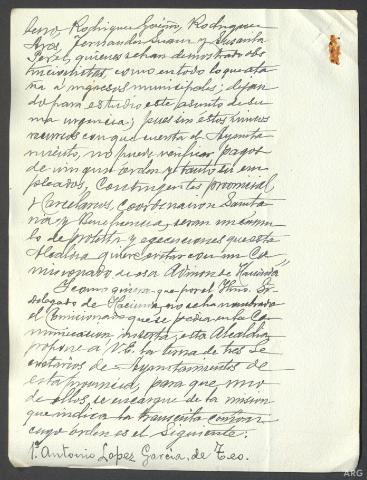 Rodriguez Rodriguez
Fernandez y Susavila
Perez, quienes se han demostrado obs
truccionistas, como en todo lo que ata
ña a ingresos municipales; dejan
do para estudio este asunto de su
ma urgencia; pues sin estos unicos
recursos con que cuenta el Ayunta
miento, no puede verificar pagos
de ningun orden y tanto sus em
pleados, Contingentes provincial,
y Carcelario, Coordinacion Sanita
ria y Beneficencia, seran un cúmu
lo de protesta y ejecuciones que esta
Alcaldia quiere evitar con un Co
misionado de esa Admon de Hacienda,
Y como quiera que por el Iltmo. Sr.
Delegado de Hacienda, no se ha nombrado
el Comisionado que se pedia en la Co
municacion inserta, esta Alcaldia
propone a V.E. la terna de tres Se
cretarios de Ayuntamientos de
esta provincia, para que uno
de ellos, se encargue de la mision
que indica la transcrita comun
cuyo orden es el Siguiente:
1º Antonio Lopez Garcia, de Teo.
ARG